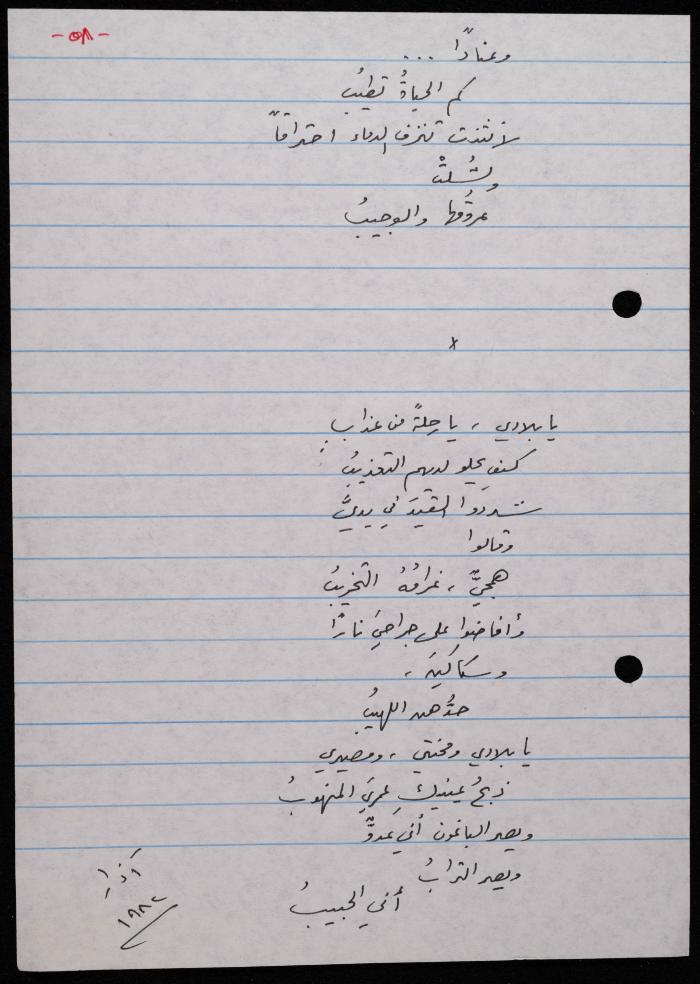 -٥٨-
وعنادًا ...
كم الحياةُ تطيبُ
لانثنت تنزف الدماء احتراقاً
وشُلتْ
عروقُها والوجيبُ
x
يا بلادي ، يا رحلةً من عذابٍ
كيف يحلو لديهم التعذيبُ
شددوا القيدَ في يديَّ
وقالوا
همجيٌّ ، غرامُهُ التخريبُ
وأفاضوا على جراحيَ نارًا
وسكاكينَ ،
حدُّهن اللهيبُ
يا بلادي ومحنتي ، ومصيري
ذبحُ عينيكِ عمريَ المنهوبُ
ويصر الباغون أني عدوٌّ
ويصر الترابُ
أني الحبيبُ
آذار
١٩٨٢